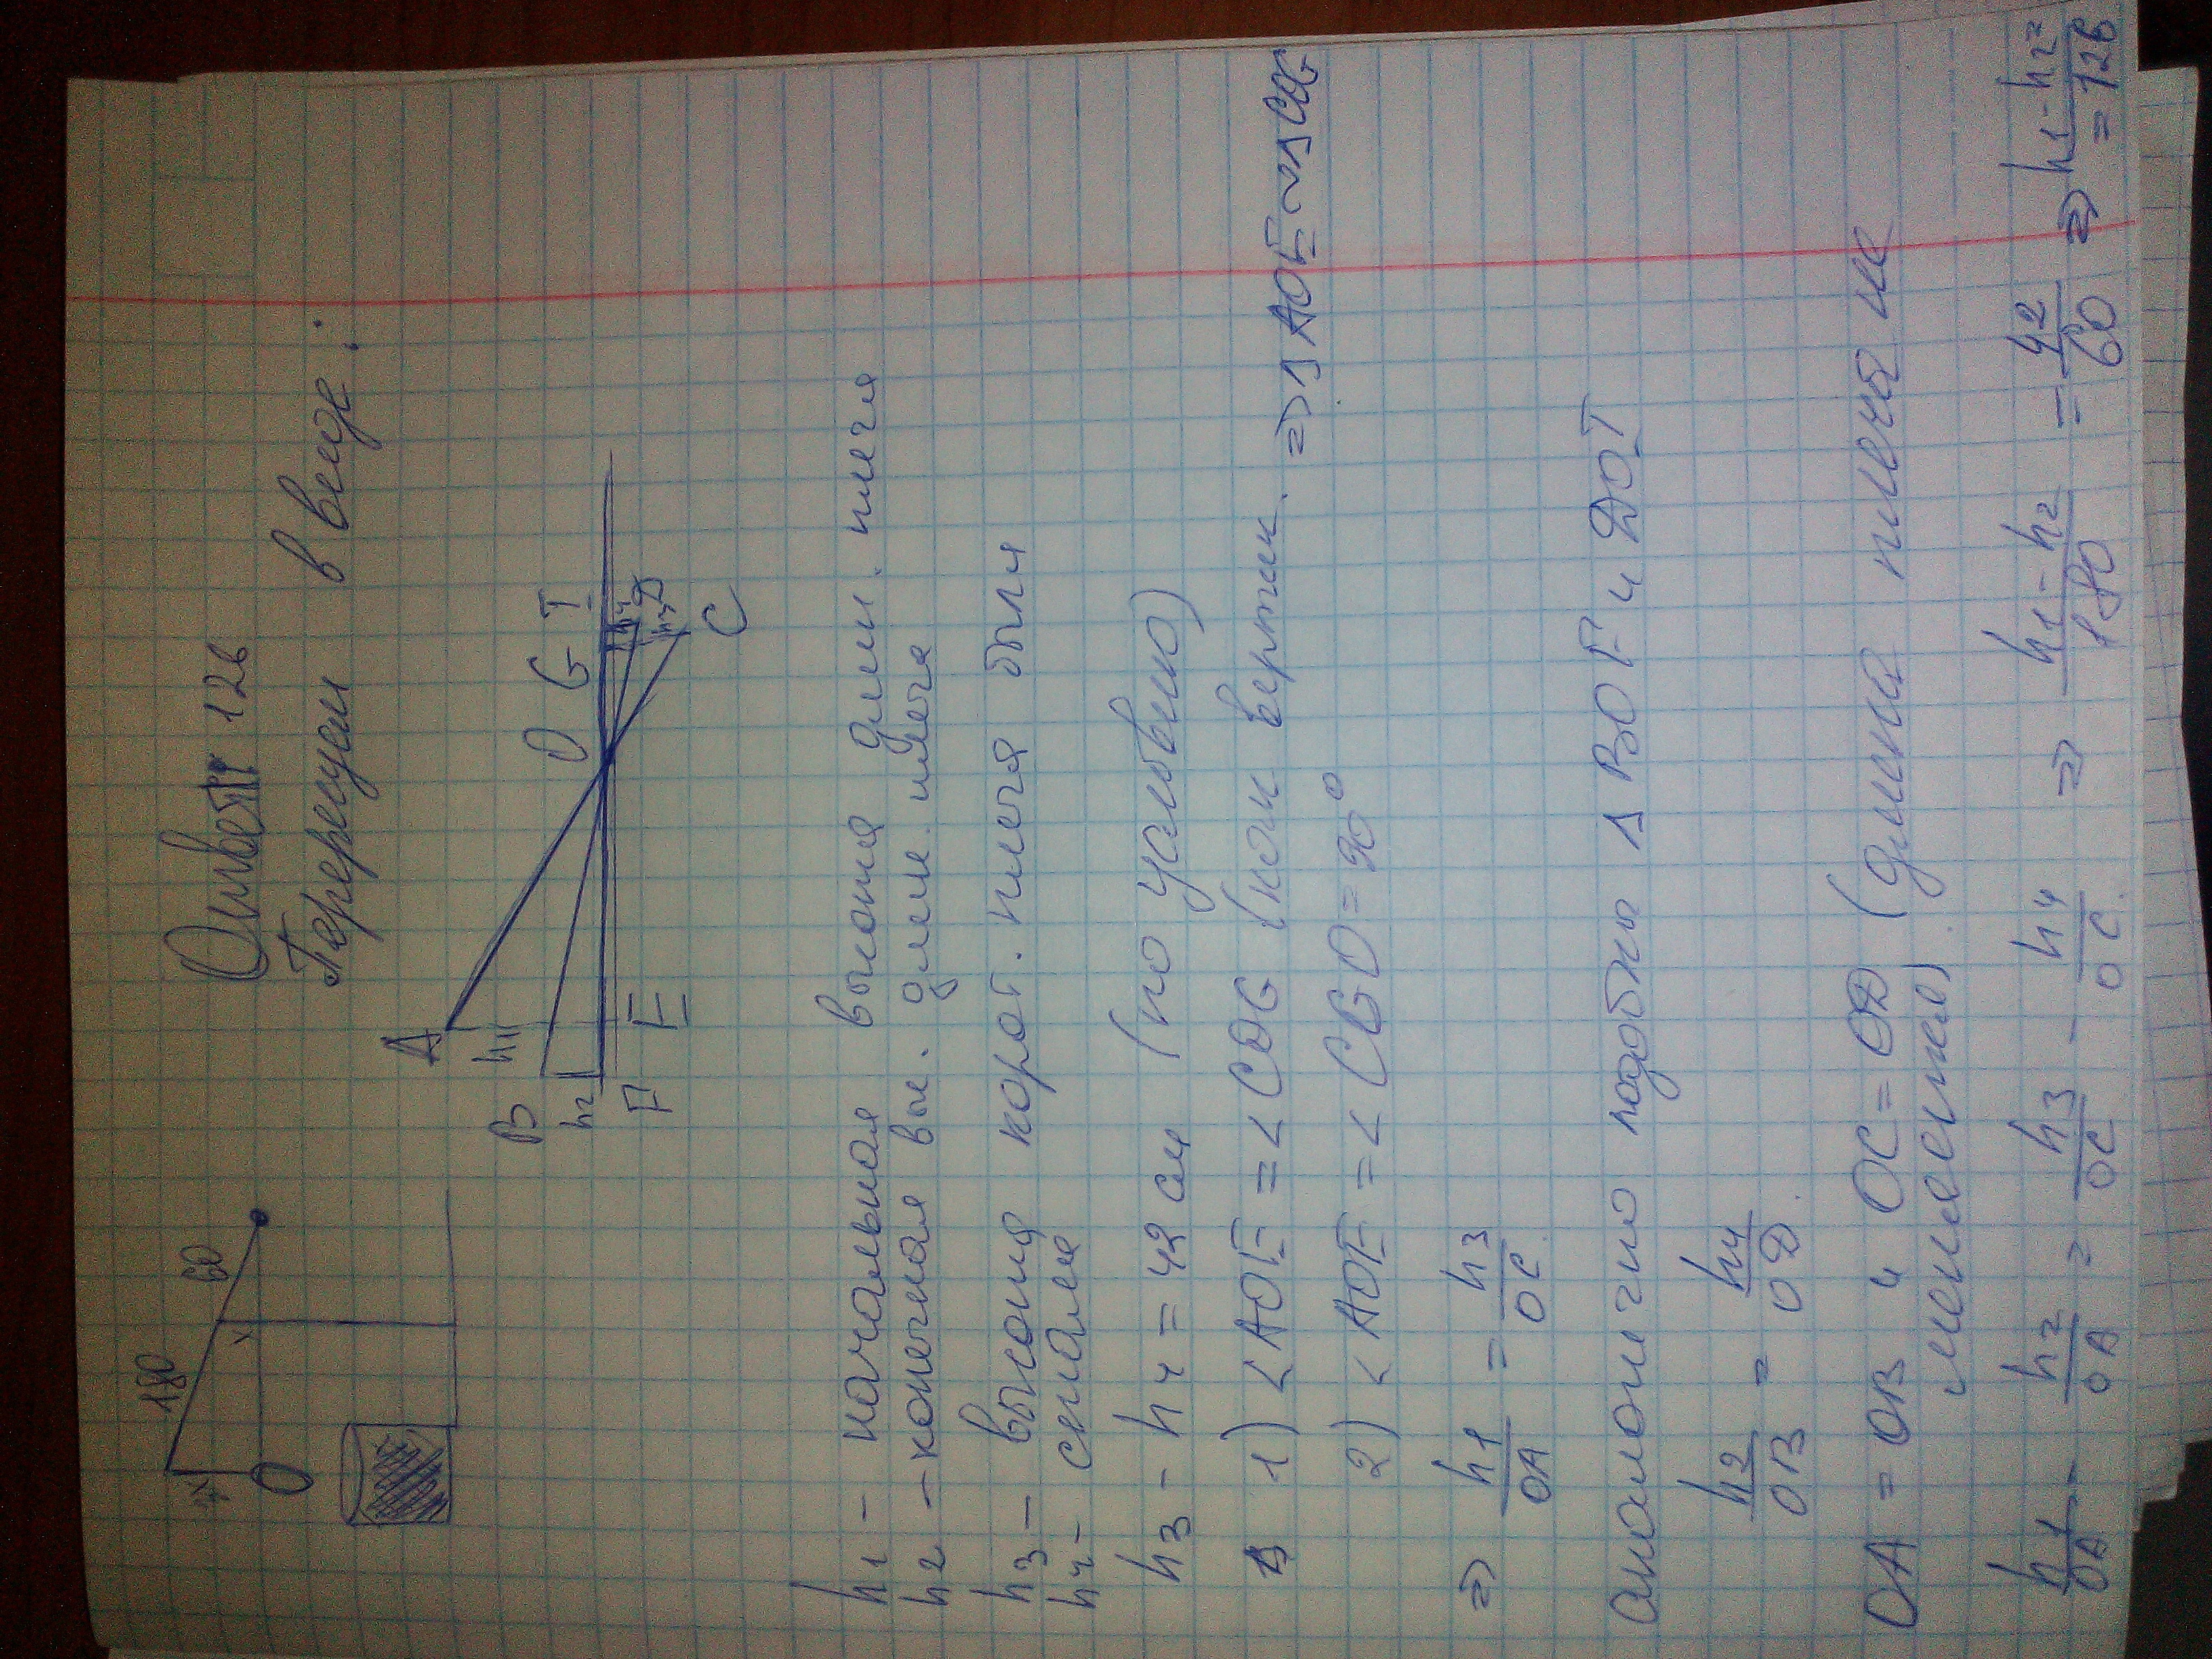 Ответ 126
Перерисуем в виде:
180 60
O
A B h1 h2 F E O G T h4 h3 D C
h1 – начальная высота длин. плеча
h2 – конечная выс. длин. плеча
h3 – высота корот. плеча была
h4 – стала
h3 - h4 = 42 см (по условию)
1) <AOE = <COG (как вертик.
2) <AOE = <CGO = 90° => Δ AOE ~ Δ COG
=> h1/OA = h3/OC.
аналогично подобны Δ BOF и DOT
h2/OB = h4/OD.
OA = OB и OC = OD (длина плеча не
меняется).
h1/OA - h2/OA = h3/OC - h4/OC. => h1-h2/180 = 42/60 => h1-h2=
=126